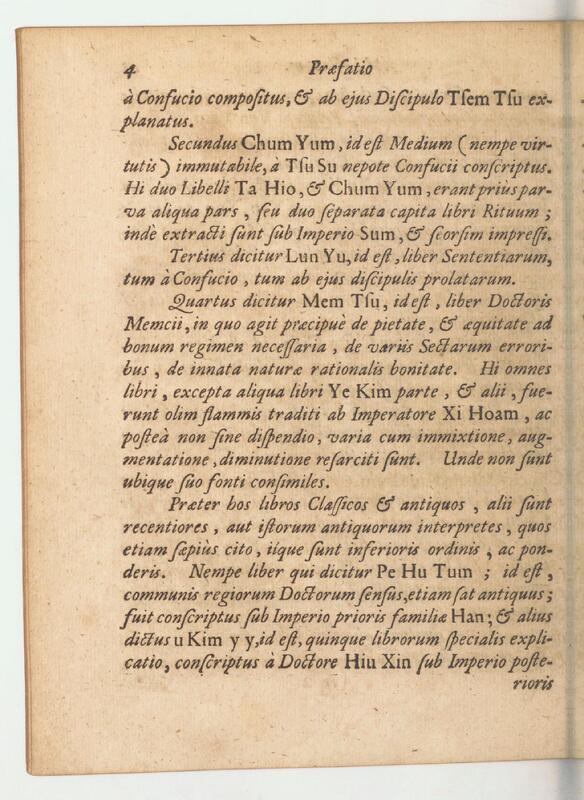 4 Præfatio
à Confucio compoſitus, & ab ejus Diſcipulo Tſem Tſu ex-
planatus.
Secundus Chum Yum, id eſt Medium (nempe vir-
tutis) immutabile, à Tſu Su nepote Confucii conſcriptus.
Hi duo Libelli Ta Hio, & Chum Yum, erant priùs par-
va aliqua pars, ſeu duo ſeparata capita libri Rituum;
indè extracti ſunt ſub Imperio Sum, & ſeorſim impreſſi.
Tertius dicitur Lun Yu, id eſt, liber Sententiarum,
tum à Confucio, tum ab ejus diſcipulis prolatarum.
Quartus dicitur Mem Tſu, id eſt, liber Doctoris
Memcii, in quo agit præcipuè de pietate, & æquitate ad
bonum regimen neceſſaria, de variis Sectarum errori-
bus, de innata naturæ rationalis bonitate. Hi omnes
libri, excepta aliqua libri Ye Kim parte, & alii, fue-
runt olim flammis traditi ab Imperatore Xi Hoam, ac
poſteà non ſine diſpendio, varia cum immixtione, aug-
mentatione, diminutione reſarciti ſunt. Unde non ſunt
ubique ſuo fonti conſimiles.
Præter hos libros Claſſicos & antiquos, alii ſunt
recentiores, aut iſtorum antiquorum interpretes, quos
etiam ſæpiùs cito, iique ſunt inferioris ordinis, ac pon-
deris. Nempe liber qui dicitur Pe Hu Tum; id eſt,
communis regiorum Doctorum ſenſus, etiam ſat antiquus;
fuit conſcriptus ſub Imperio prioris familiæ Han; & alius
dictus u Kim y y, id eſt, quinque librorum ſpecialis expli-
catio, conſcriptus à Doctore Hiu Xin ſub Imperio poſte-
rioris